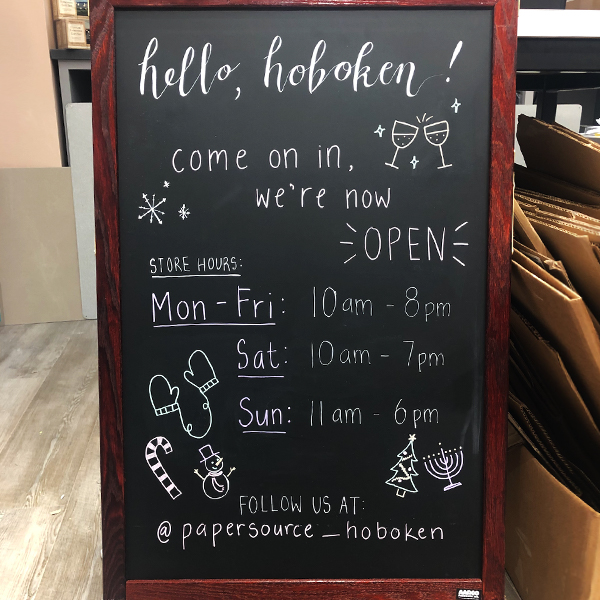 hello, hoboken!
come on in,
we're now
OPEN
STORE HOURS:
Mon - Fri: 10am - 8pm
Sat: 10am - 7pm
Sun: 11am - 6pm
FOLLOW US AT:
@papersource_hoboken